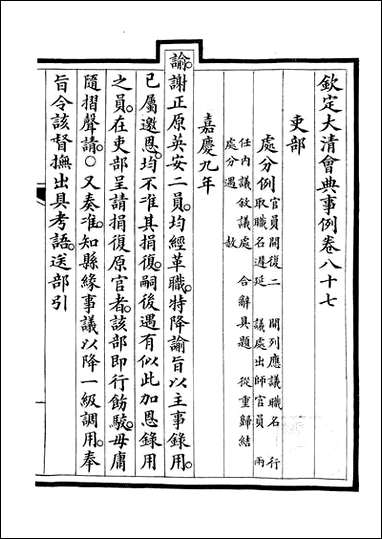 欽定大清會典事例卷八十七
吏部
處分例官員開復二 開列應議職名 行
取職名遲延 議處出師官員 兩
任內議敘議處 合辭具題 從重歸結
處分遇赦
嘉慶九年
諭。謝正原英安二員。均經革職。特降諭旨。以主事錄用。
已屬邀恩。均不准其捐復。嗣後遇有似此加恩錄用
之員。在吏部呈請捐復原官者。該部即行飭駮。毋庸
隨摺聲請。○又奏准。知縣緣事議以降一級調用。奉
旨令該督撫出具考語。送部引